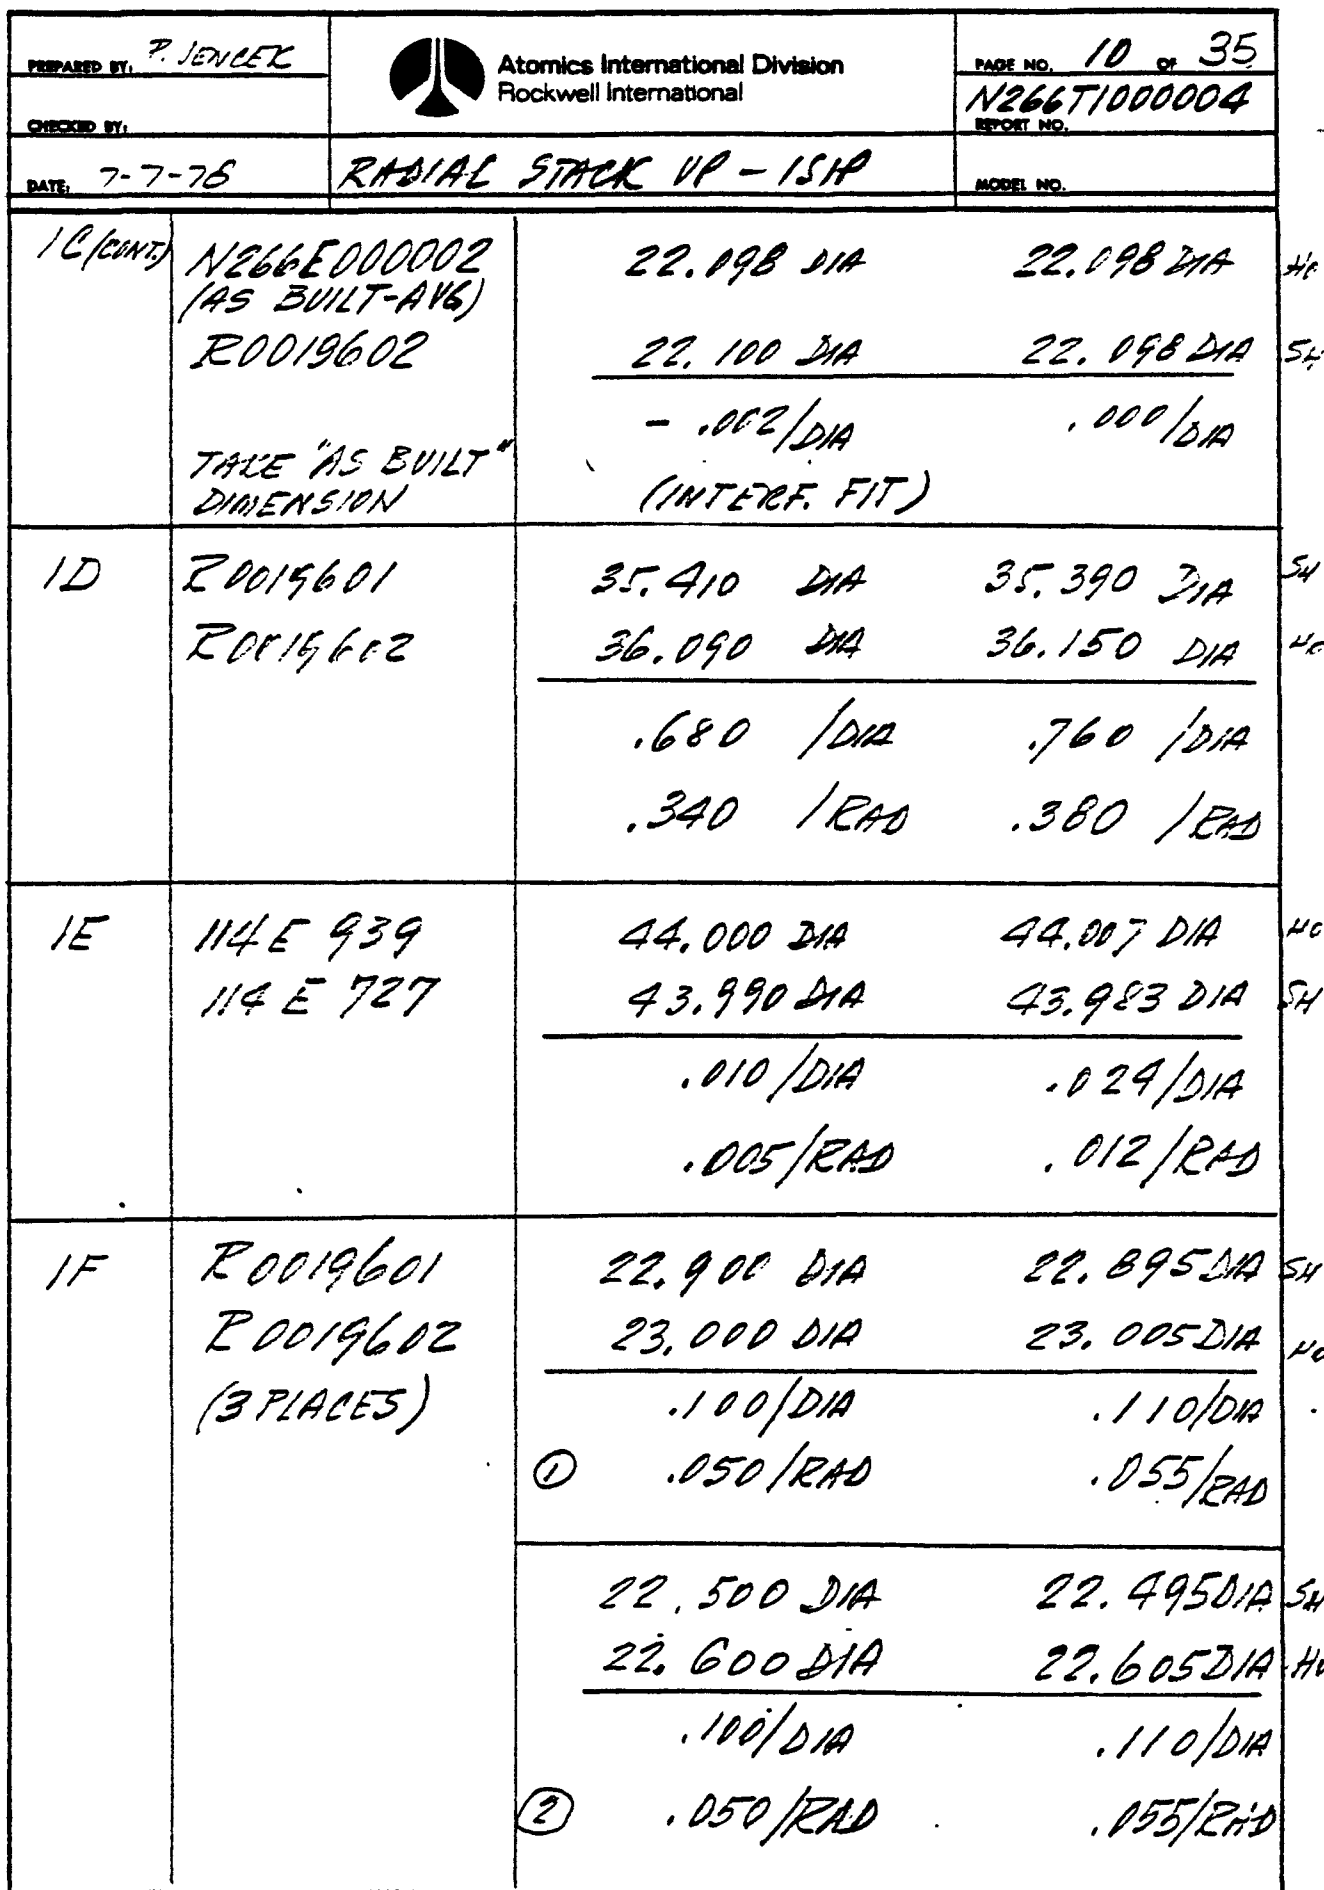 PREPARED BY: P. JENCEK
Atomics International Division
Rockwell International
PAGE NO. 10 OF 35
N266TI000004
REPORT NO.
CHECKED BY:
DATE: 7-7-78
RADIAL STACK UP - ISIP
MODEL NO.
1C (CONT.) N266E000002 22.098 DIA 22.098 DIA HO
(AS BUILT-AVG)
R0019602 22.100 DIA 22.098 DIA SH
- .002/DIA .000/DIA
TAKE "AS BUILT"
DIMENSION (INTERF. FIT)
1D R0019601 35.410 DIA 35.390 DIA SH
R0019602 36.090 DIA 36.150 DIA HO
.680 /DIA .760 /DIA
.340 /RAD .380 /RAD
1E 114E 939 44.000 DIA 44.007 DIA HO
114E 727 43.990 DIA 43.983 DIA SH
.010/DIA .024/DIA
.005/RAD .012/RAD
1F R0019601 22.900 DIA 22.895 DIA SH
R0019602 23.000 DIA 23.005 DIA HO
(3 PLACES) .100/DIA .110/DIA
① .050/RAD .055/RAD
22.500 DIA 22.495 DIA SH
22.600 DIA 22.605 DIA HO
.100/DIA .110/DIA
② .050/RAD .055/RAD